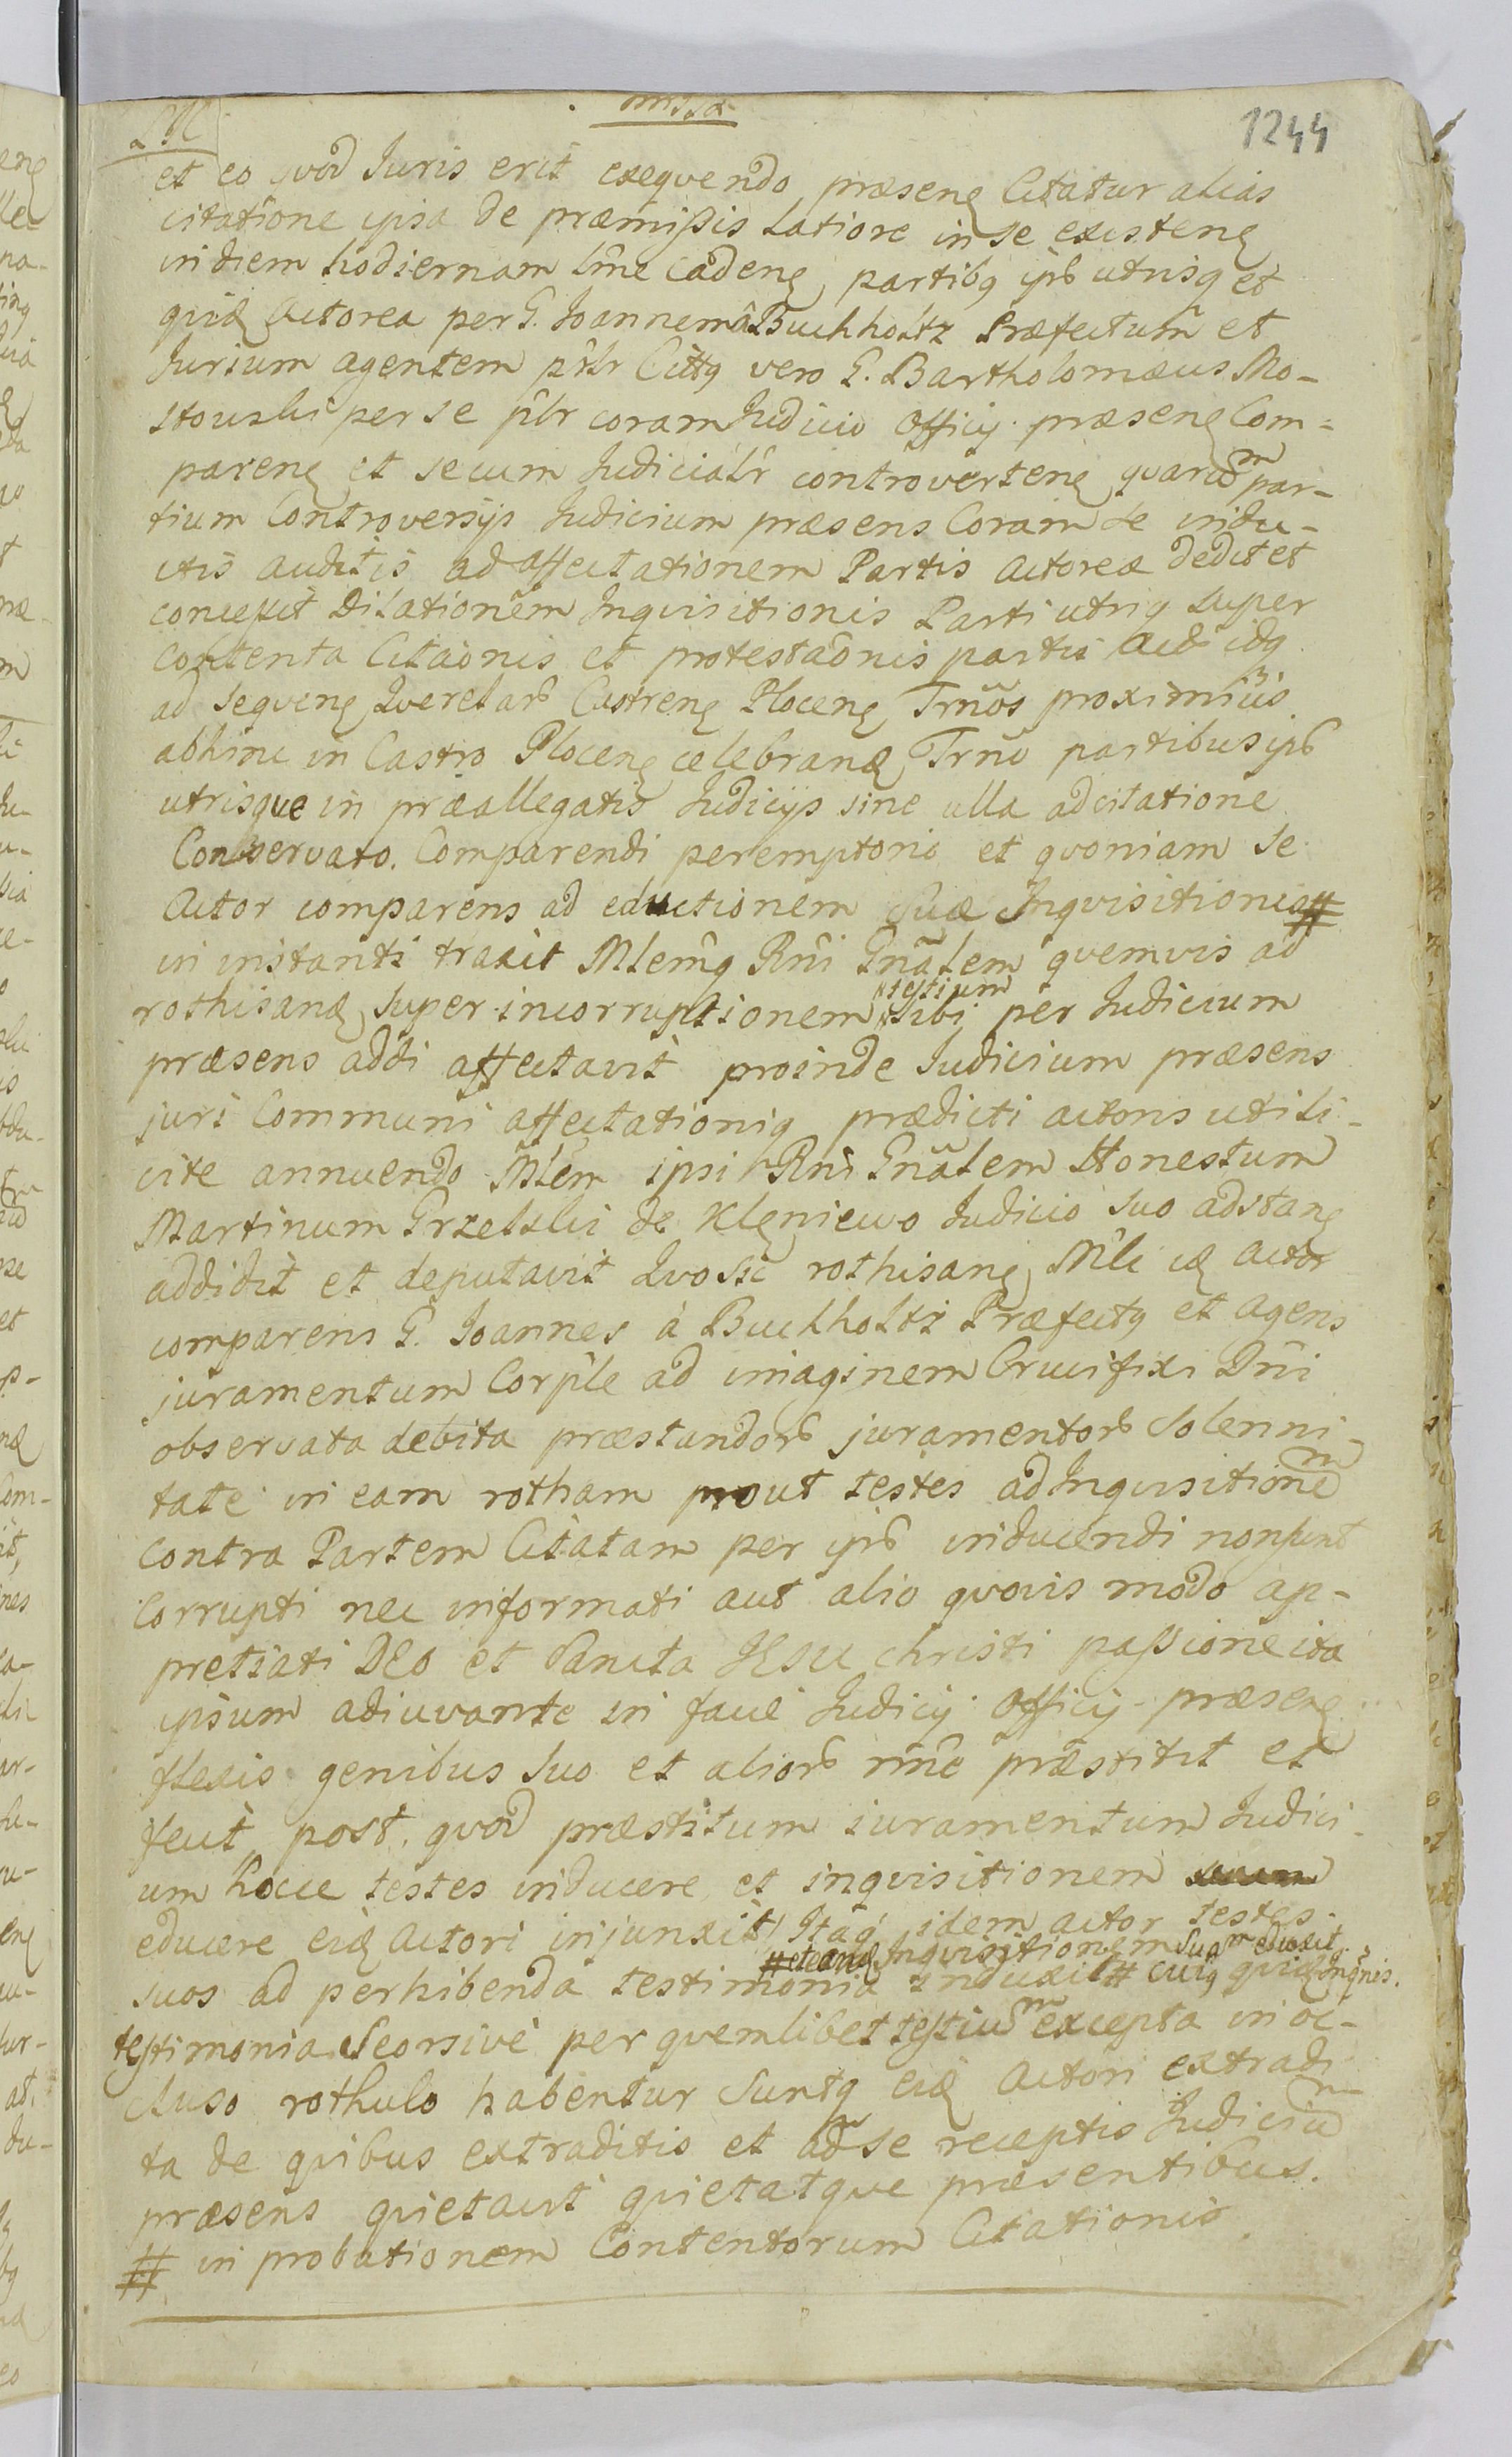 1244
et eo quod Juris erit exequendo præsenꝭ Citatur alias
citatione ipsa de præmissis Latiore in se existenꝭ
in diem hodiernam lîme cadenꝭ, partibꝫ ipꝭ utrisqꝫ et
quiꝺ Actorea per G. Joannem â Buchholtz Præfectum et
Jurium agentem prlr Cittꝰ vero G. Bartholomæus Mo-
stouski per se plr coram Judicio Officij præsenꝭ Com=
parenꝭ et secum Judicialr controvertenꝭ quarum par-
tium Controversijs Judicium præsens Coram se indu-
ctis auditis ad affectationem Partis Actoreæ dedit et
concessit Dilationem Inqvisitionis Parti utriqꝫ super
contenta Citaõnis et protestaõnis partis Act idqꝫ
ad seqvenꝭ Qverelarꝭ Castrenꝭ Plocenꝭ Trños proximius
abhinc in Castro Plocenꝭ celebranꝺ, Trño partibus ipꝭ
utrisque in præallegatis Judicijs sine ulla adcitatione
Conservato. Comparendi peremptorio et qvoniam se
Actor comparens ad eductionem suæ Inqvisitionis #
in instanti traxit Mlemqꝫ Rñi Gñalem qvemvis ad
rothisanꝺ super incorruptionem testium sibi per Judicium
præsens addi affectavit proinde Judicium præsens
juri Communi affectationiqꝫ prædicti actoris utili-
cite annuendo Mlem ipsi Rñi Gñalem Honestum
Martinum Grzelski de Klęniewo Judicio suo adstanꝭ
addidit et deputavit Qvo sic rothisanꝭ Mli iꝺ actor
comparens G. Joannes à Buchholtz Præfectꝰ et Agens
juramentum Corple ad imaginem Crucifixi Dñi
observata debita præstandorꝭ juramentorꝭ Solenni-
tate in eam rotham prout testes ad Inqvisitionem
contra Partem Citatam per ipꝭ inducendi non sunt
corrupti nec informati aut alio qvovis modo ap-
pretiati DEO et Sancta JESU Christi passione ita
ipsum adiuvante in facie Judicij Officij præsenꝭ
flexis genibus suo et aliorꝭ nñe præstitit et
fecit, post qvod præstitum iuramentum Judici-
um hocce testes inducere et inqvisitionem
educere eiꝺ Actori injunxit, Itaqꝫ idem actor testes
# eteanꝺ Inqvisitionem suam eduxit
suos ad perhibenda testimonia induxit # cuiꝰ quiꝺ Inqñis.
testimonia Seorsivè per qvemlibet testium excepta in oc-
cluso rothulo habentur suntqꝫ eiꝺ Actori extradi-
ta de qvibus extraditis et ad se receptis Judicium
præsens qvietavit qvietatque præsentibus.
# in probationem Contentorum Citationis.